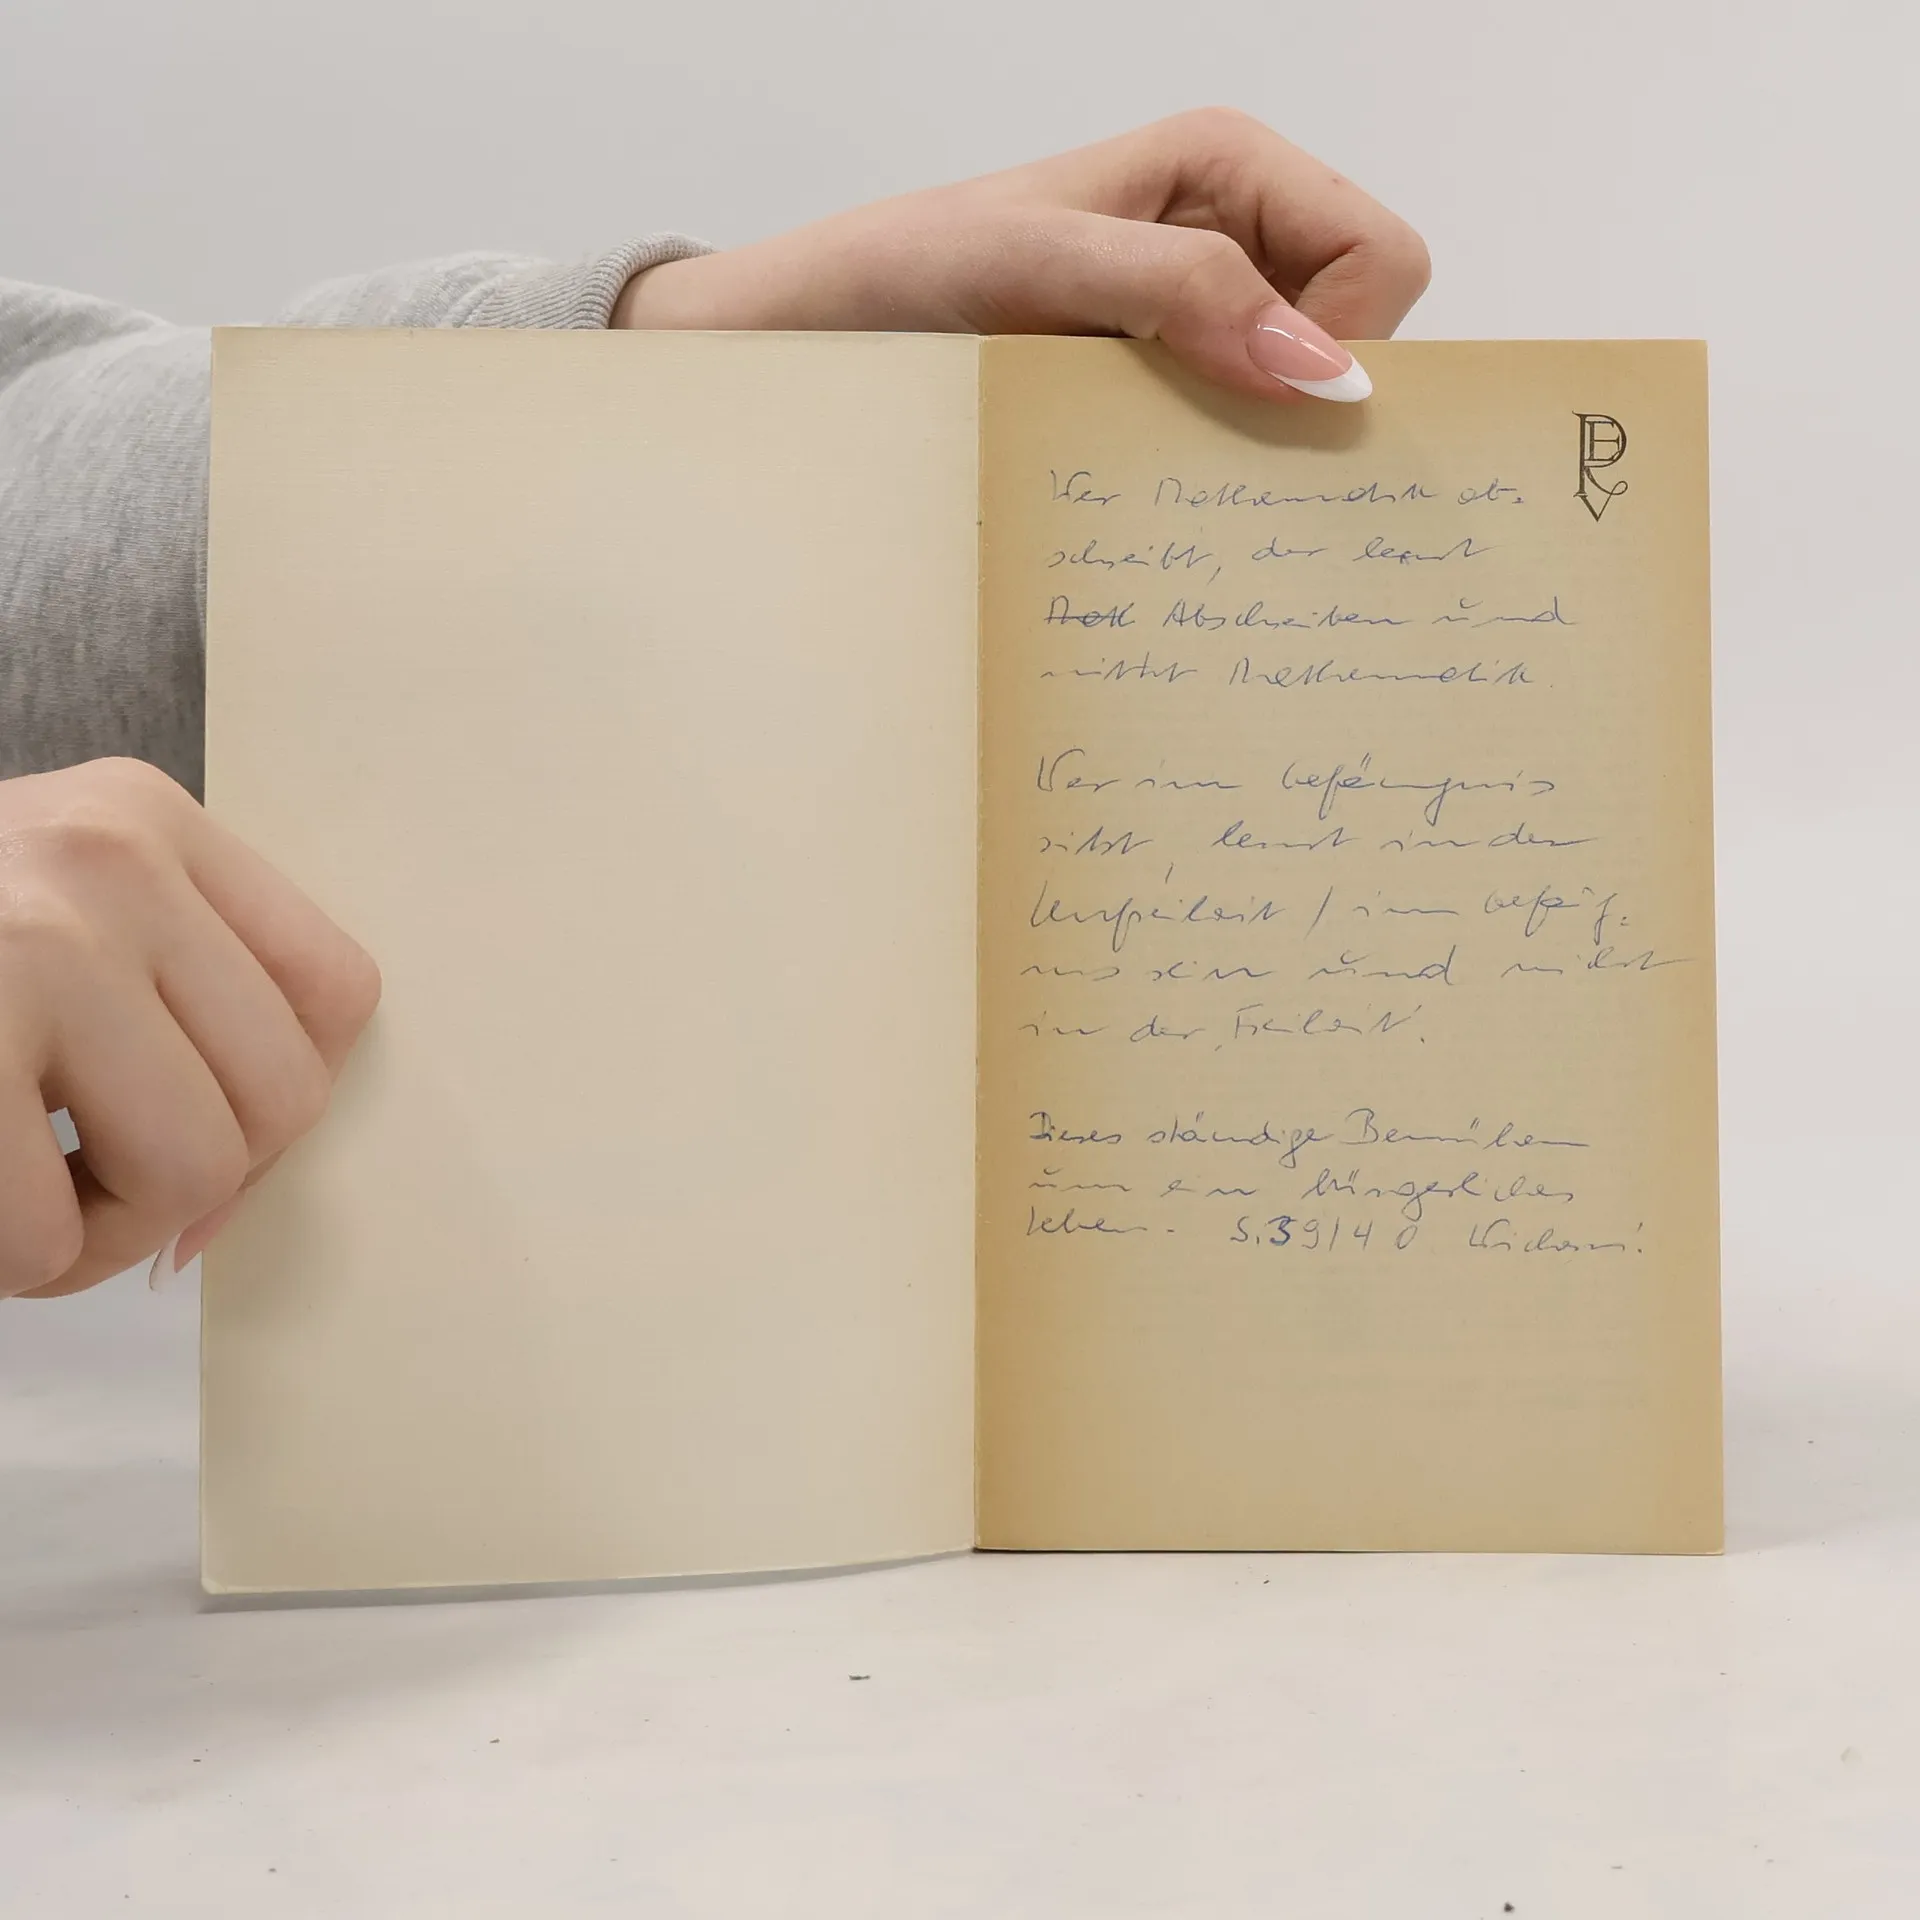 PEV
Wer Mathematik ab=
schreibt, der lernt
Math Abschreiben und
nicht Mathematik.
Wer im Gefängnis
sitzt, lernt in der
Unfreiheit / im Gefäg=
nis sein und nicht
in der, Freiheit'.
Dieses ständige Bemühen
um ein bürgerliches
Leben. S. 39/40 Wichern!